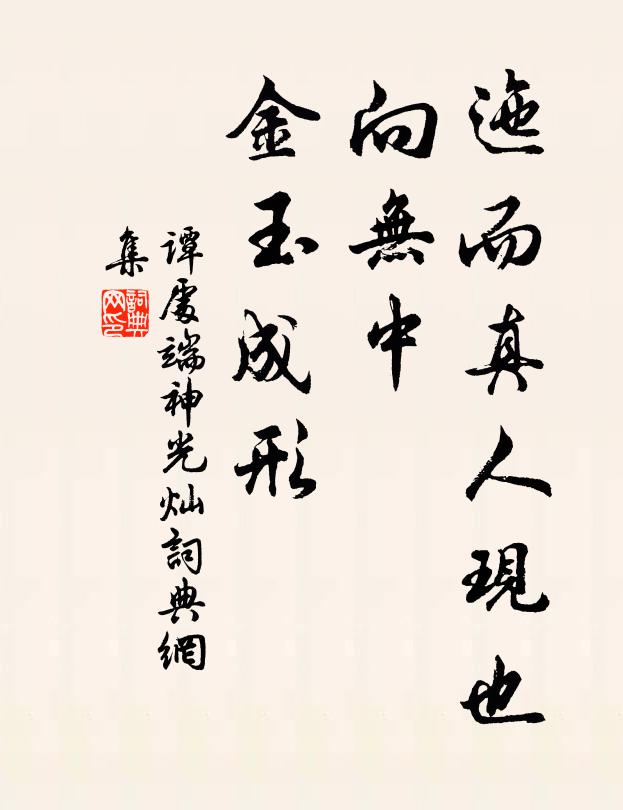 迤而真人現也
向無中
金玉成形
譚處端神光灿詞典網
集
詞典网印